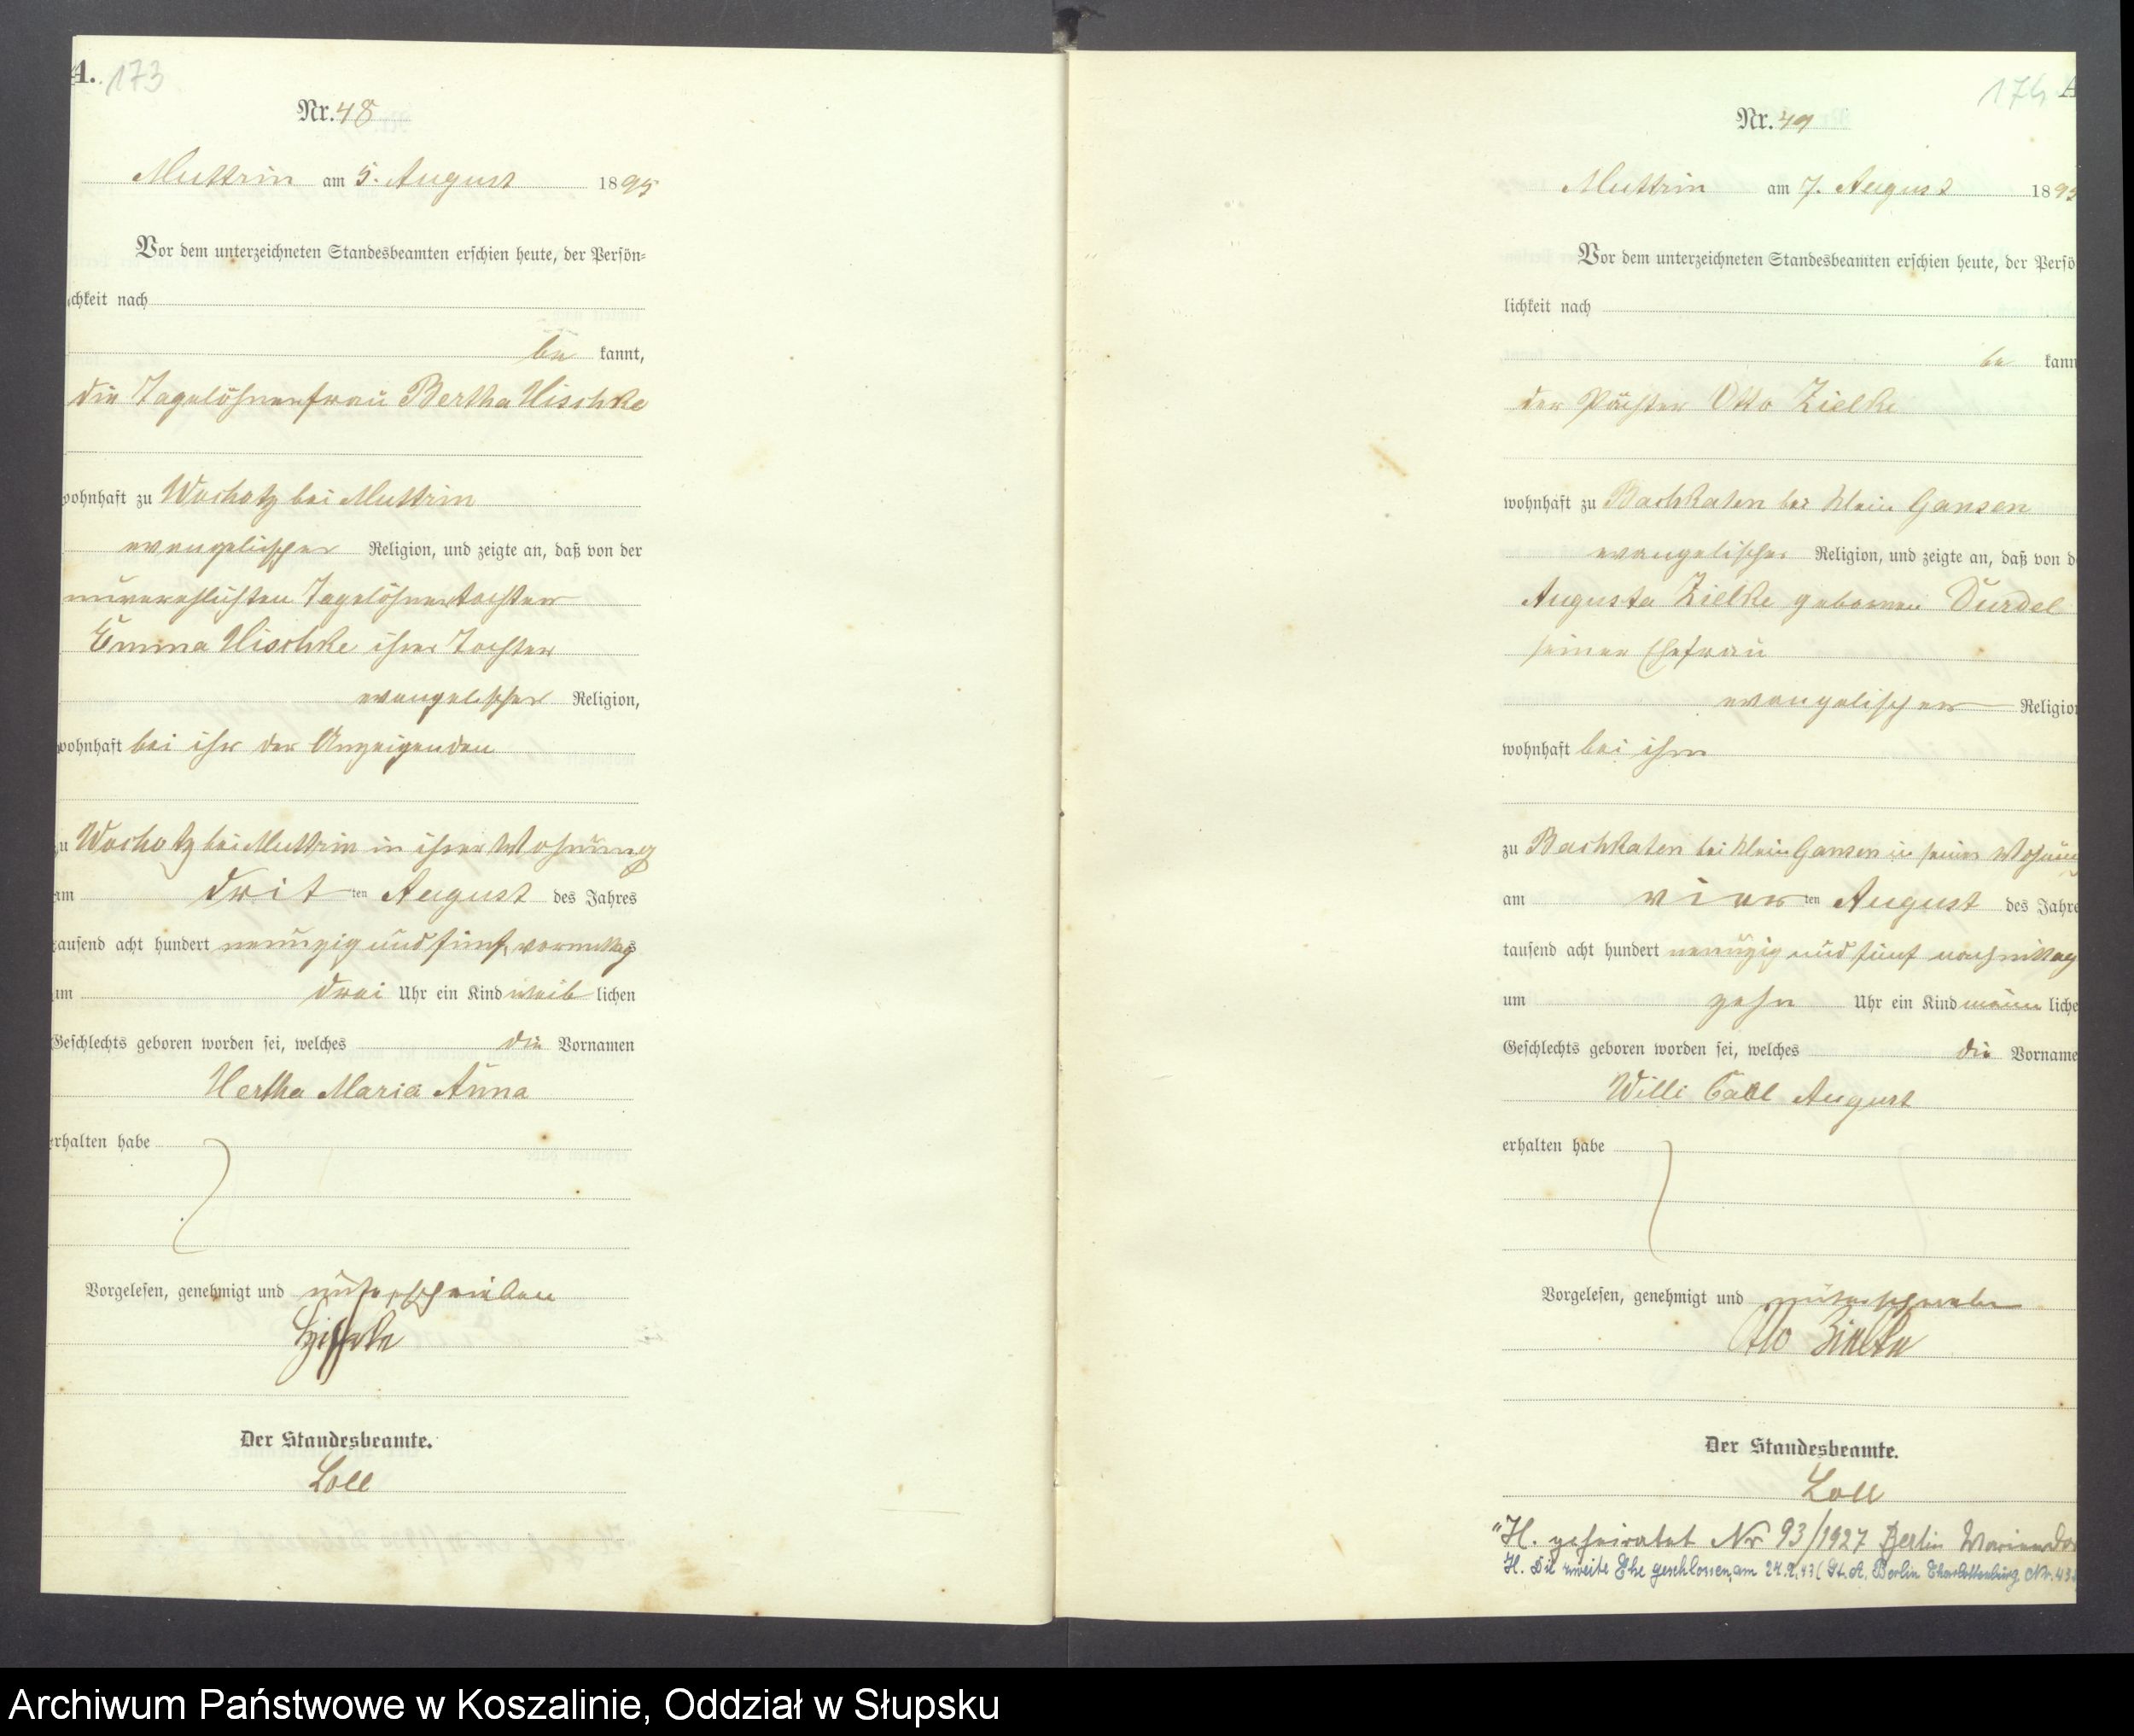 A. 173
Nr. 48
Muttrin am 5. August 1895
Vor dem unterzeichneten Standesbeamten erschien heute, der Persön-
lichkeit nach
be kannt,
die Tagelöhnerfrau Bertha Hischke
wohnhaft zu Wochotz bei Muttrin
evangelischer Religion, und zeigte an, daß von der
unverehlichten Tagelöhnertochter
Emma Hischke ihrer Tochter
evangelischer Religion,
wohnhaft bei ihr der Anzeigenden
zu Wochotz bei Muttrin in ihrer Wohnung
am drit ten August des Jahres
tausend acht hundert neunzig und fünf, vormittags
um drei Uhr ein Kind weib lichen
Geschlechts geboren worden sei, welches die Vornamen
Hertha Maria Anna
erhalten habe
Vorgelesen, genehmigt und unterschrieben
Der Standesbeamte.
Loll
174 A
Nr. 49
Muttrin am 7. August 1895
Vor dem unterzeichneten Standesbeamten erschien heute, der Persö
lichkeit nach
be kann
der Pächter Otto Zielke
wohnhaft zu Bachkaten bei Klein Gansen
evangelischer Religion, und zeigte an, daß von d
Augusta Zielke geborenen Durdel
seiner Ehefrau
evangelischer Religion
wohnhaft bei ihm
zu Bachkaten bei Klein Gansen in seiner Wohnun
am vier ten August des Jahre
tausend acht hundert neunzig und fünf nachmittag
um zehn Uhr ein Kind männ liche
Geschlechts geboren worden sei, welches die Vorname
Willi Carl August
erhalten habe
Vorgelesen, genehmigt und unterschrieben
Otto Zielke
Der Standesbeamte.
Loll
"H. geheiratet Nr 93/1927 Berlin Mariendor
H. Die zweite Ehe geschlossen, am 24.2.43 (St. A. Berlin Charlottenburg Nr. 43
Archiwum Państwowe w Koszalinie, Oddział w Słupsku